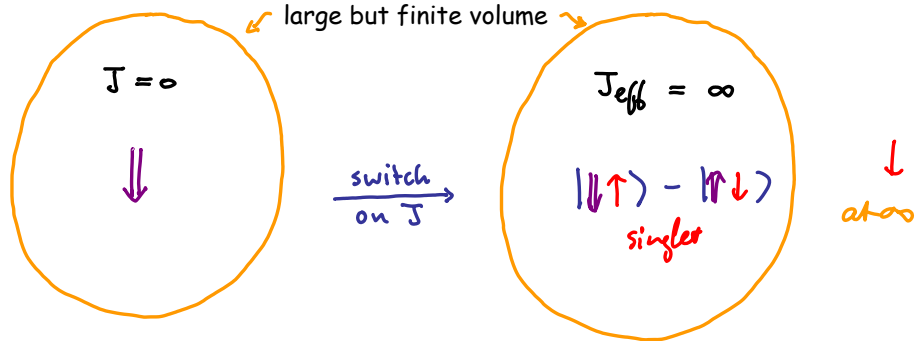 large but finite volume
J = 0
J_eff = ∞
⇓
switch
on J
|⇓↑⟩ - |⇑↓⟩
singlet
↓
at ∞